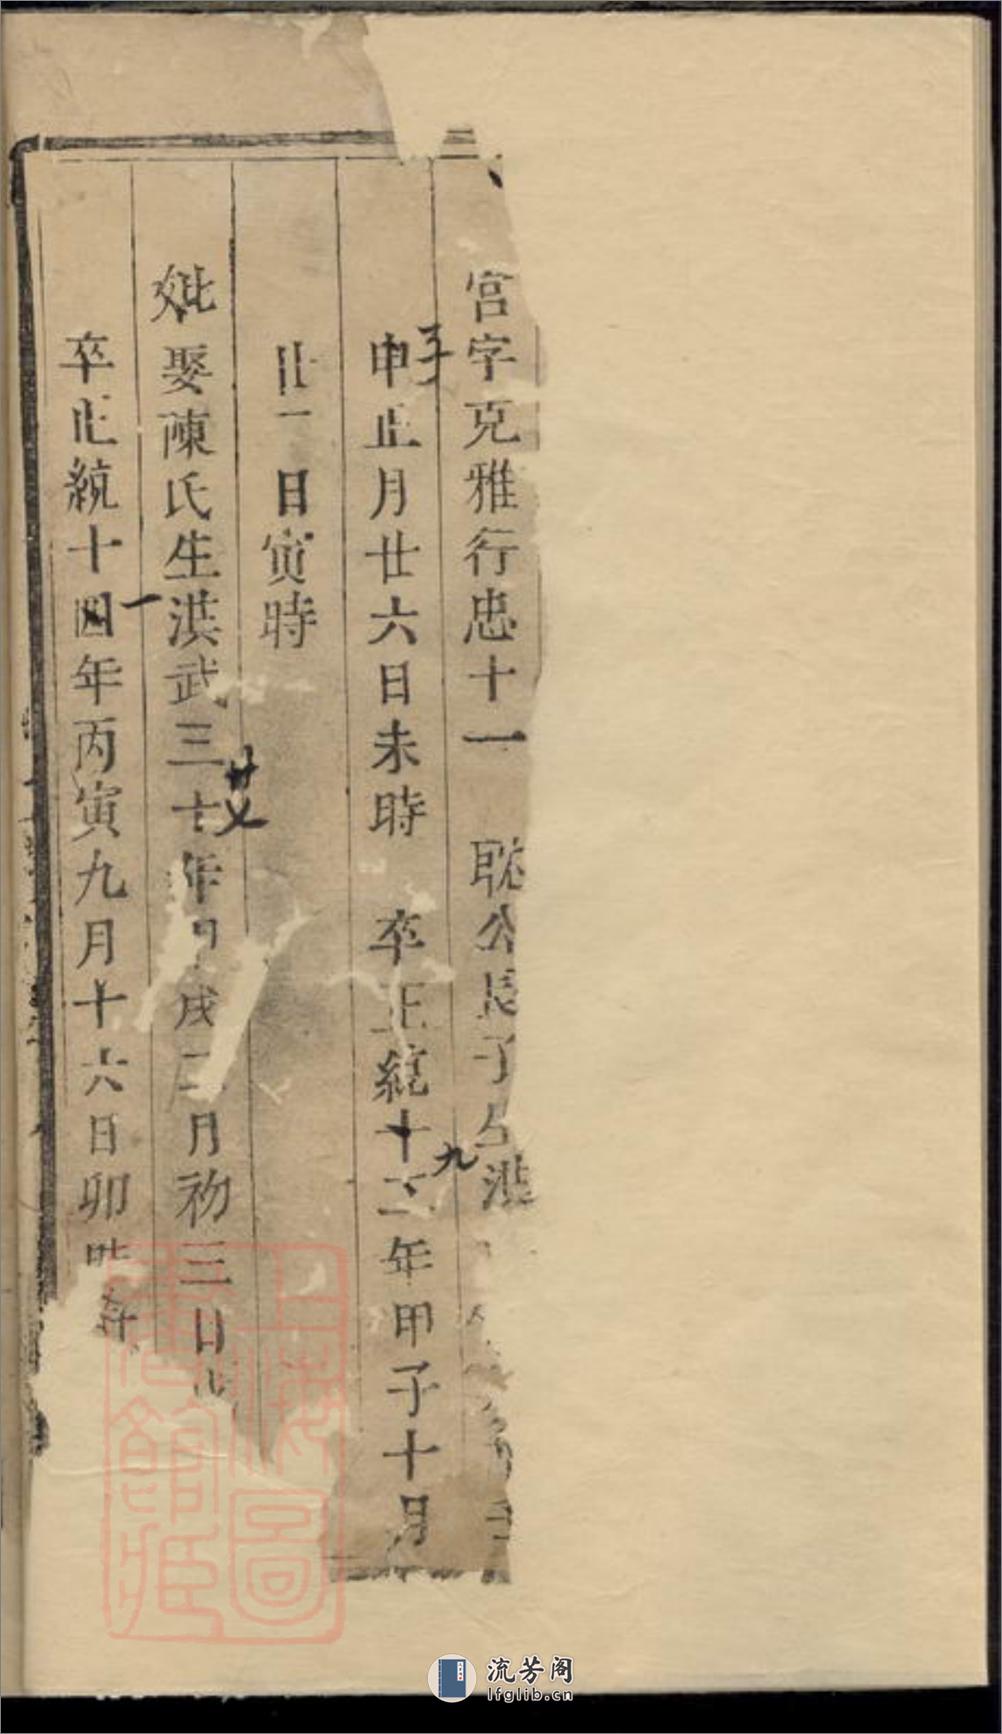 宫字克雅行忠十一 耽公長子生洪
壬
申正月廿六日未時 卒正統十二年甲子十月
九
廿一日寅時
妣娶陳氏生洪武三十年甲戌二月初三日
廿七
卒正統十四年丙寅九月十六日卯時
一
上海圖書館藏
流芳阁
lfglib.cn